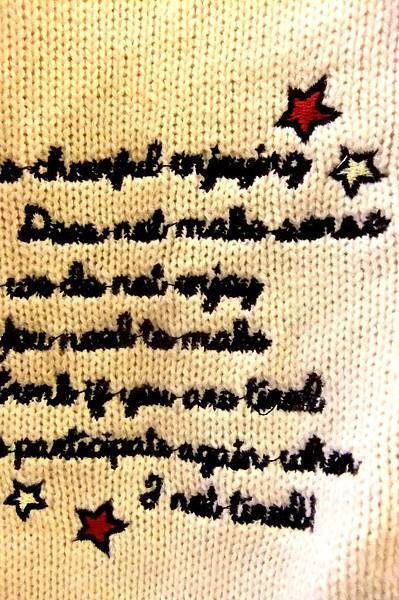 cheerful enjoying
Does not make sense
do not enjoy
you need to make
if you are tired
participate again when
I not tired!